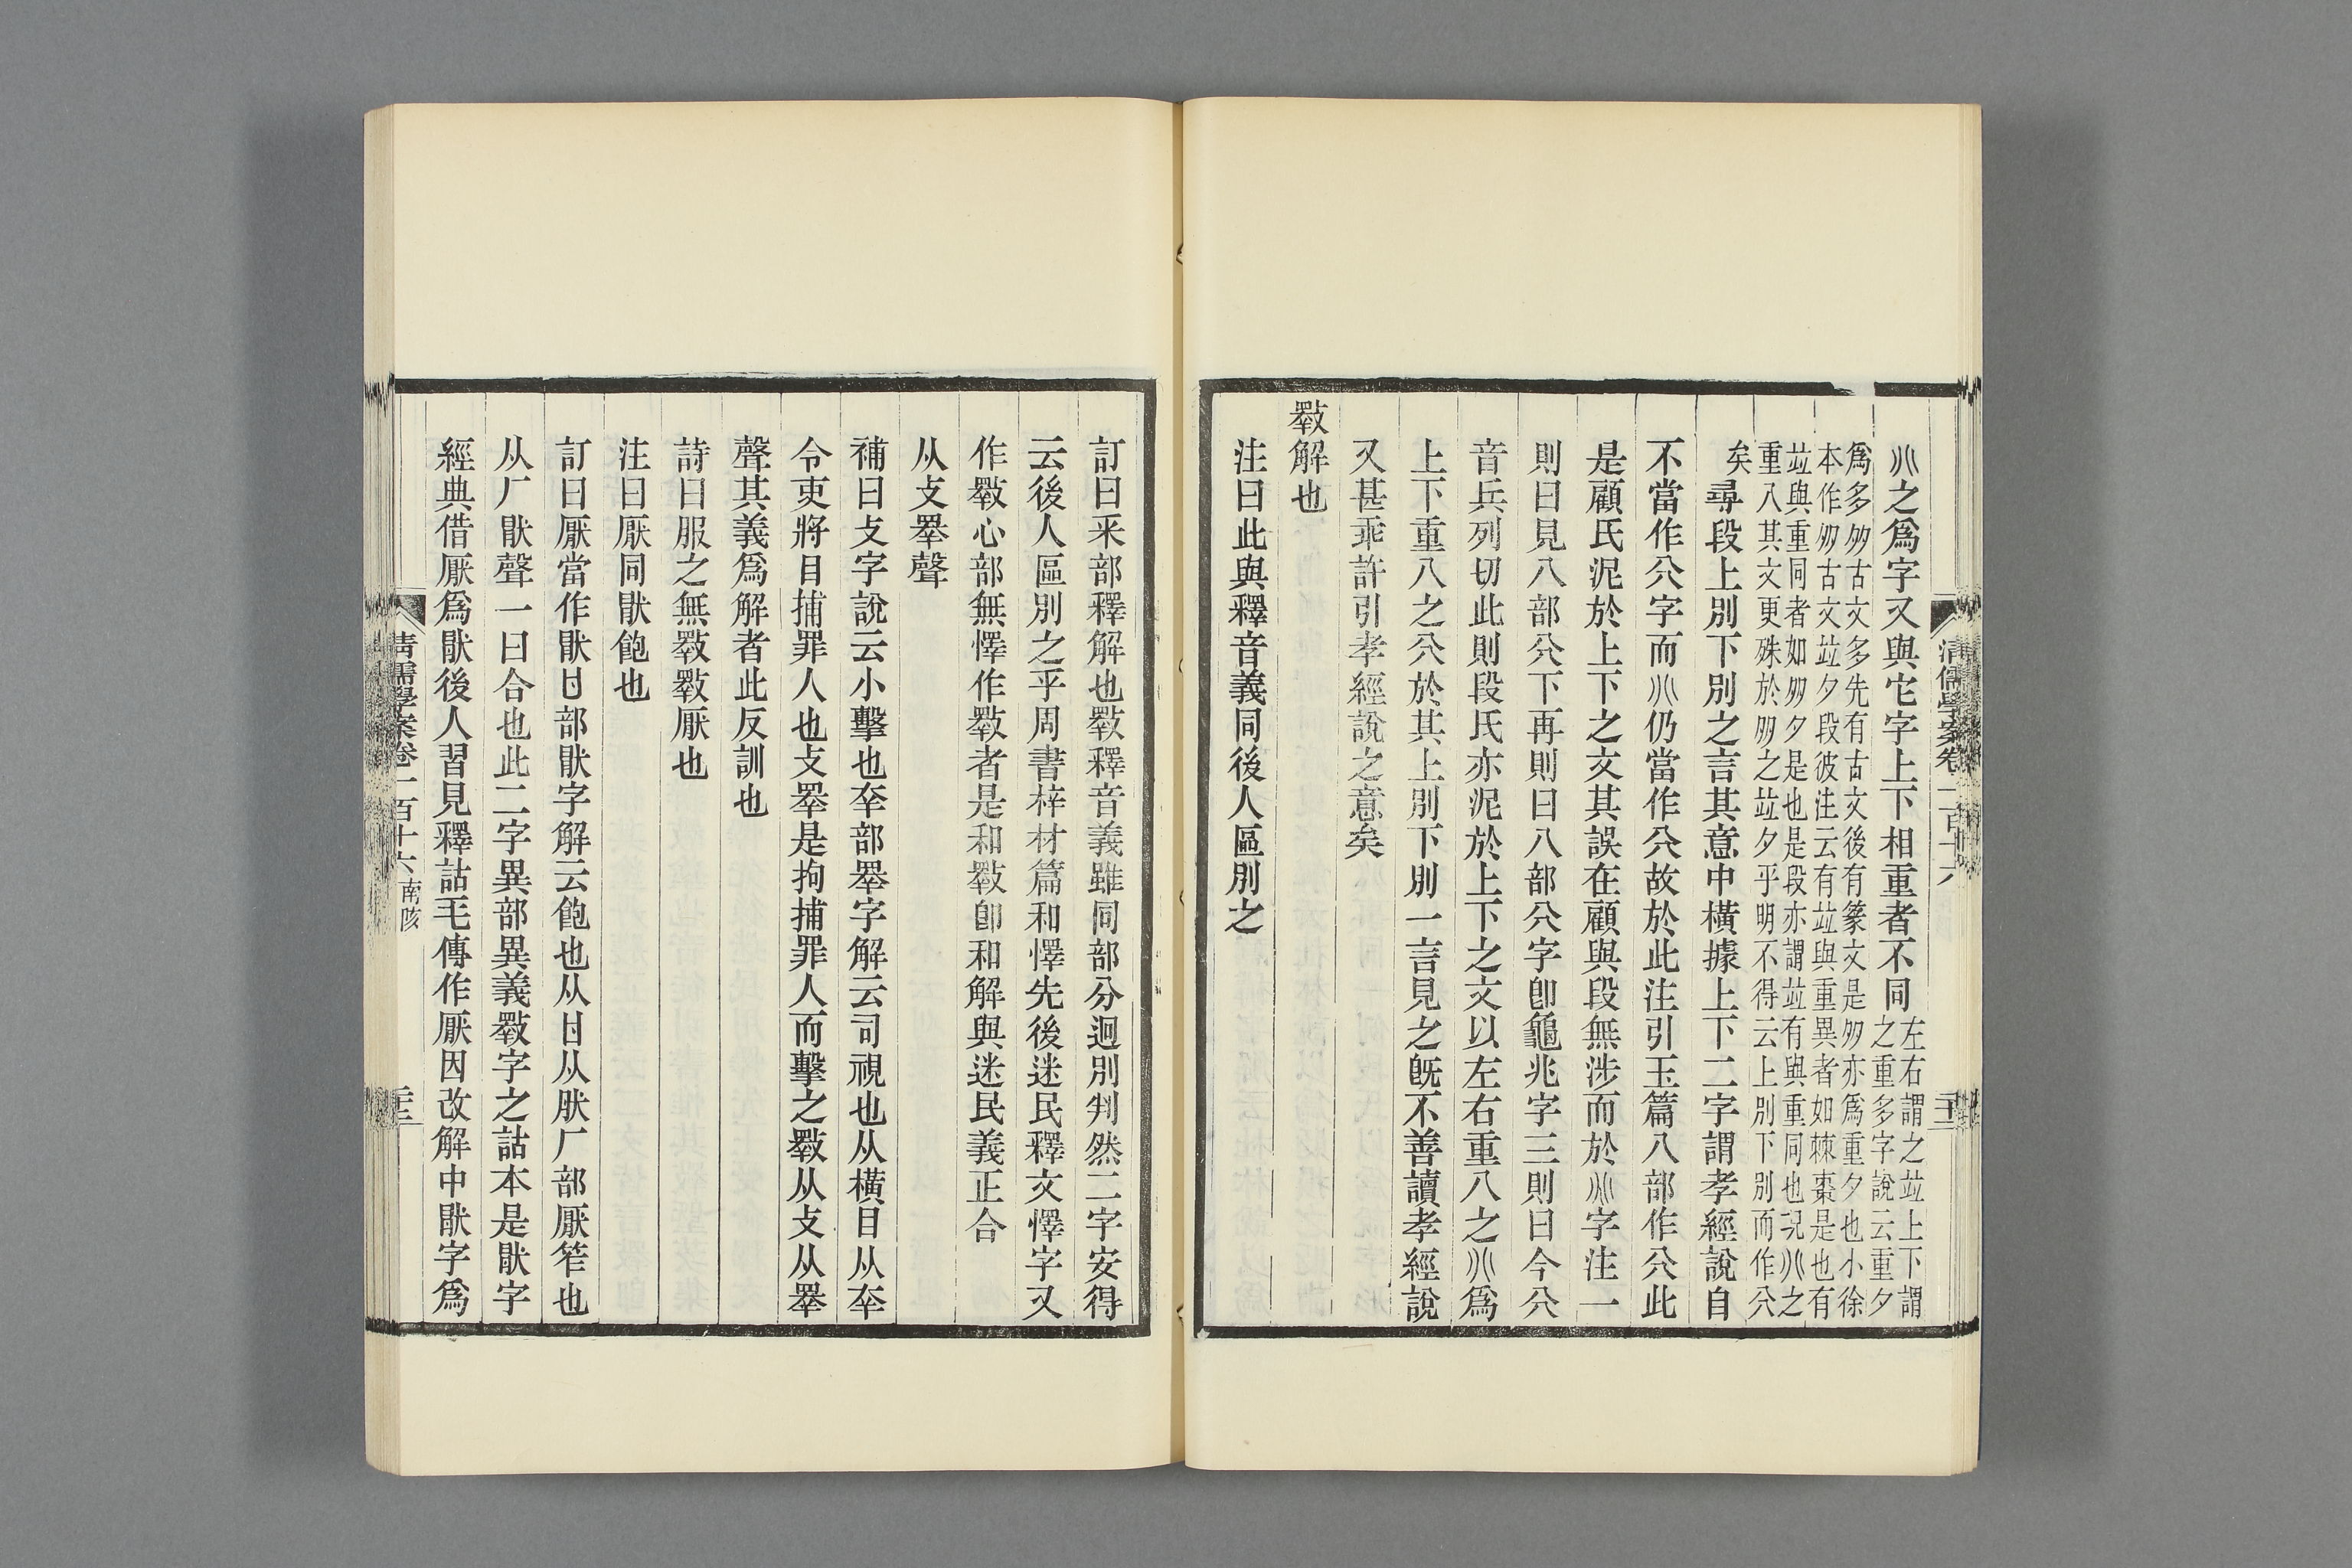 清儒學案卷一百十六
〣之爲字又與它字上下相重者不同左右謂之竝上下謂之重多字說云重夕
爲多夗古文多先有古文後有篆文是夗亦爲重夕也小徐
本作夗古文竝夕段彼注云有竝與重異者如棘棗是也有
竝與重同者如夗夕是也是段亦謂竝有與重同也況〣之
重八其文更殊於夗之竝夕乎明不得云上別下別而作㕣
矣尋段上別下別之言其意中橫據上下二字謂孝經說自
不當作㕣字而〣仍當作㕣故於此注引玉篇八部作㕣此
是顧氏泥於上下之文其誤在顧與段無涉而於〣字注一
則曰見八部㕣下再則曰八部㕣字卽龜兆字三則曰今㕣
音兵列切此則段氏亦泥於上下之文以左右重八之〣爲
上下重八之㕣於其上別下別一言見之旣不善讀孝經說
又甚乖許引孝經說之意矣
斁解也
注曰此與釋音義同後人區別之
訂曰釆部釋解也斁釋音義雖同部分迥別判然二字安得
云後人區別之乎周書梓材篇和懌先後迷民釋文懌字又
作斁心部無懌作斁者是和斁卽和解與迷民義正合
从攴睪聲
補曰攴字說云小擊也㚔部睪字解云司視也从橫目从㚔
令吏將目捕罪人也攴睪是拘捕罪人而擊之斁从攴从睪
聲其義爲解者此反訓也
詩曰服之無斁斁厭也
注曰厭同猒飽也
訂曰厭當作猒甘部猒字解云飽也从甘从肰厂部厭笮也
从厂猒聲一曰合也此二字異部異義斁字之詁本是猒字
經典借厭爲猒後人習見釋詁毛傳作厭因改解中猒字爲
清儒學案卷一百十六 南陔